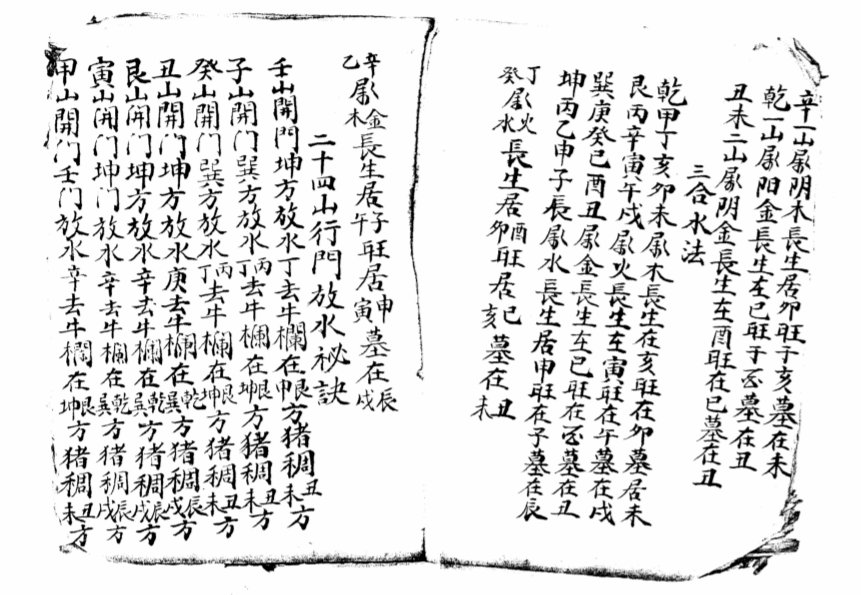 辛一山属阴木長生居卯旺于亥墓在未
乾一山属阳金長生在巳旺于酉墓在丑
丑未二山属阴金長生在酉旺在巳墓在丑
三合水法
乾甲丁亥卯未属木長生在亥旺在卯墓居未
艮丙辛寅午戌属火長生在寅旺在午墓在戌
巽庚癸巳酉丑属金長生在巳旺在酉墓在丑
坤丙乙申子辰属水長生居申旺在子墓在辰
丁癸属火水長生居酉卯旺居巳亥墓在丑未
辛乙属金木長生居子午旺居申寅墓在辰戌
二十四山行門放水祕訣
壬山開門坤方放水丁去牛欄在艮申方猪稠丑未方
子山開门巽方放水丙丁去牛欄在艮坤方猪稠丑未方
癸山開门巽方放水丙丁去牛欄在艮坤方猪稠丑未方
丑山開门坤方放水庚去牛欄在乾巽方猪稠辰戌方
艮山開门坤方放水辛去牛欄在乾巽方猪稠辰戌方
寅山開门坤门放水辛去牛欄在乾巽方猪稠辰戌方
甲山開门壬门放水辛去牛欄在艮坤方猪稠丑未方